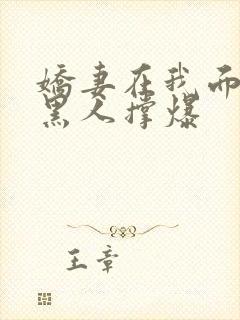 娇妻在我面
黑人撑爆
王章